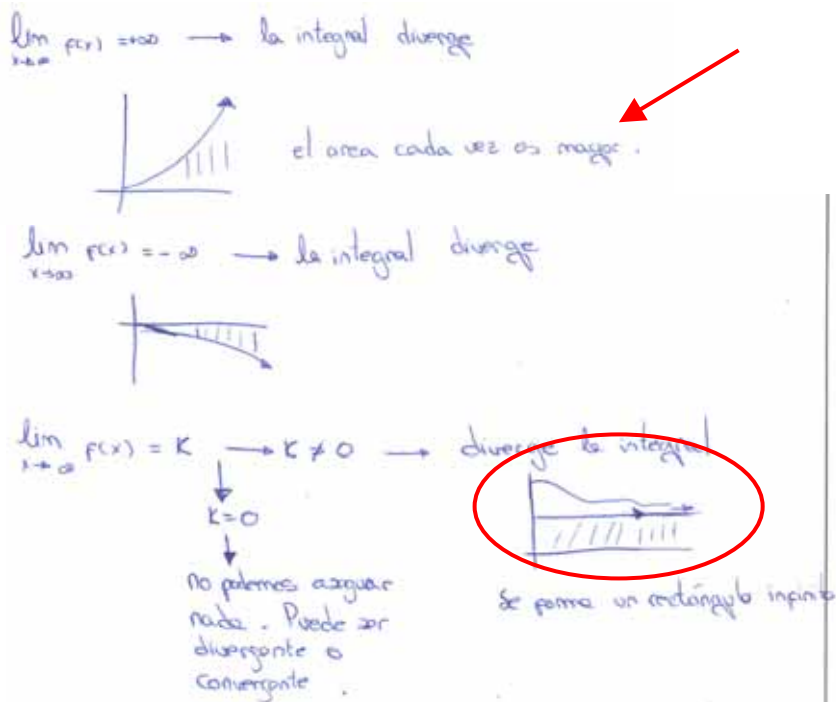 lim f(x) = +∞ → la integral diverge
x→∞
el area cada vez es mayor.
lim f(x) = -∞ → la integral diverge
x→∞
lim f(x) = K → K ≠ 0 → diverge la integral
x→∞
K=0
no podemos asegurar
nada. Puede ser
divergente o
convergente.
Se forma un rectángulo infinito